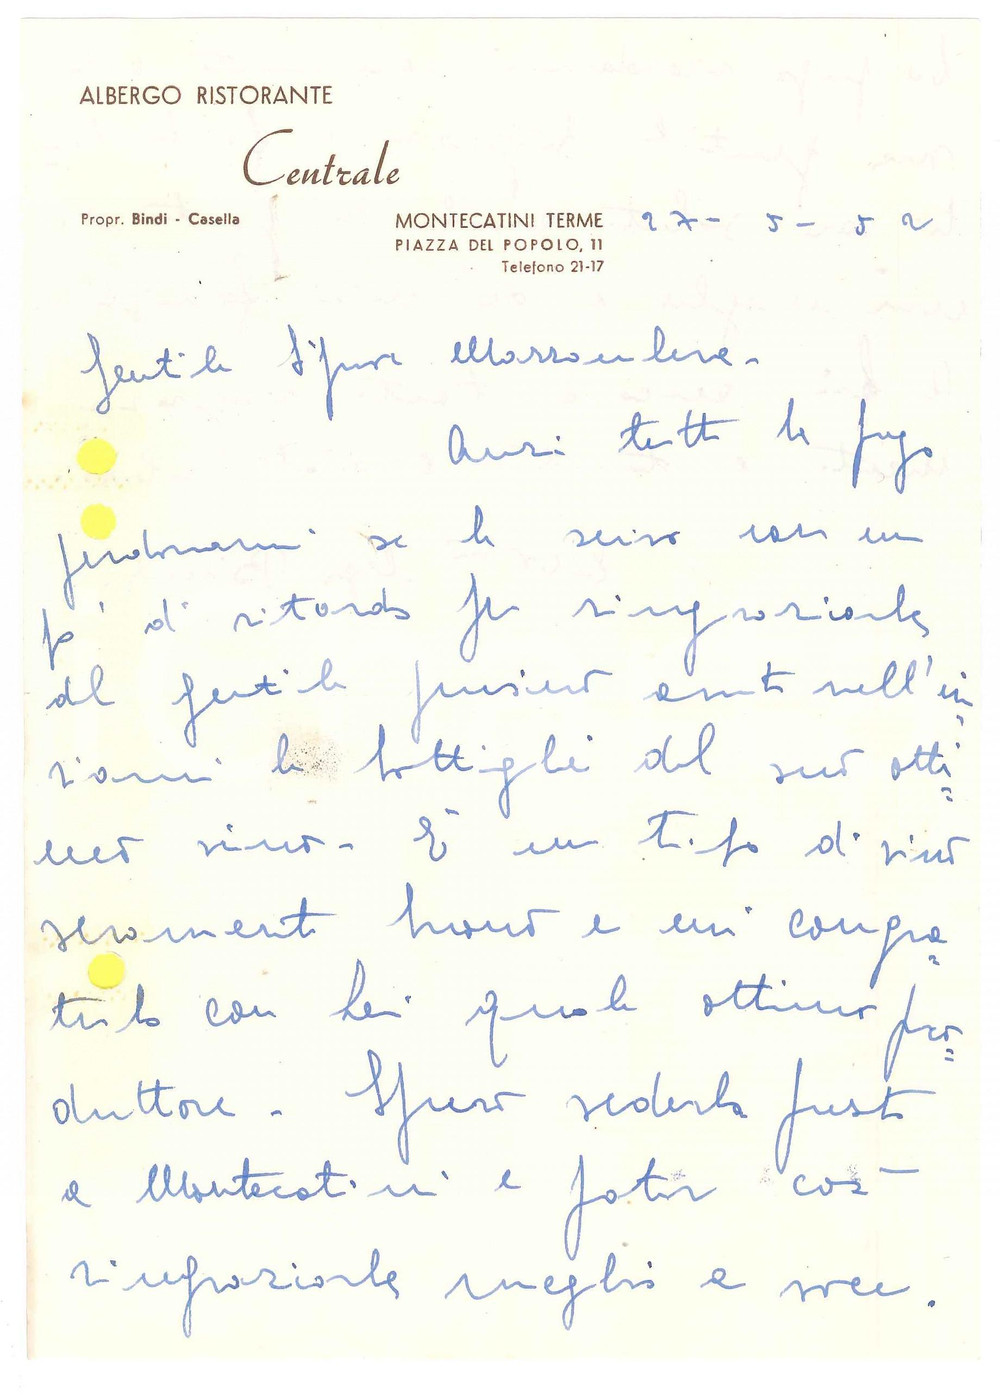 ALBERGO RISTORANTE
Centrale
Propr. Bindi - Casella
MONTECATINI TERME 27- 5- 52
PIAZZA DEL POPOLO, 11
Telefono 21-17
Gentile Signore
Anzi tutto la prego
perdonarmi se le scrivo con un
po' di ritardo per ringraziarla
del gentile pensiero avuto nell'in
viarmi le bottiglie del suo otti
mo vino - È un tipo di vino
veramente buono e mi congra
tulo con Lei quale ottimo pro
duttore - Spero vederla presto
a Montecatini e poter così
ringraziarla meglio a voce.